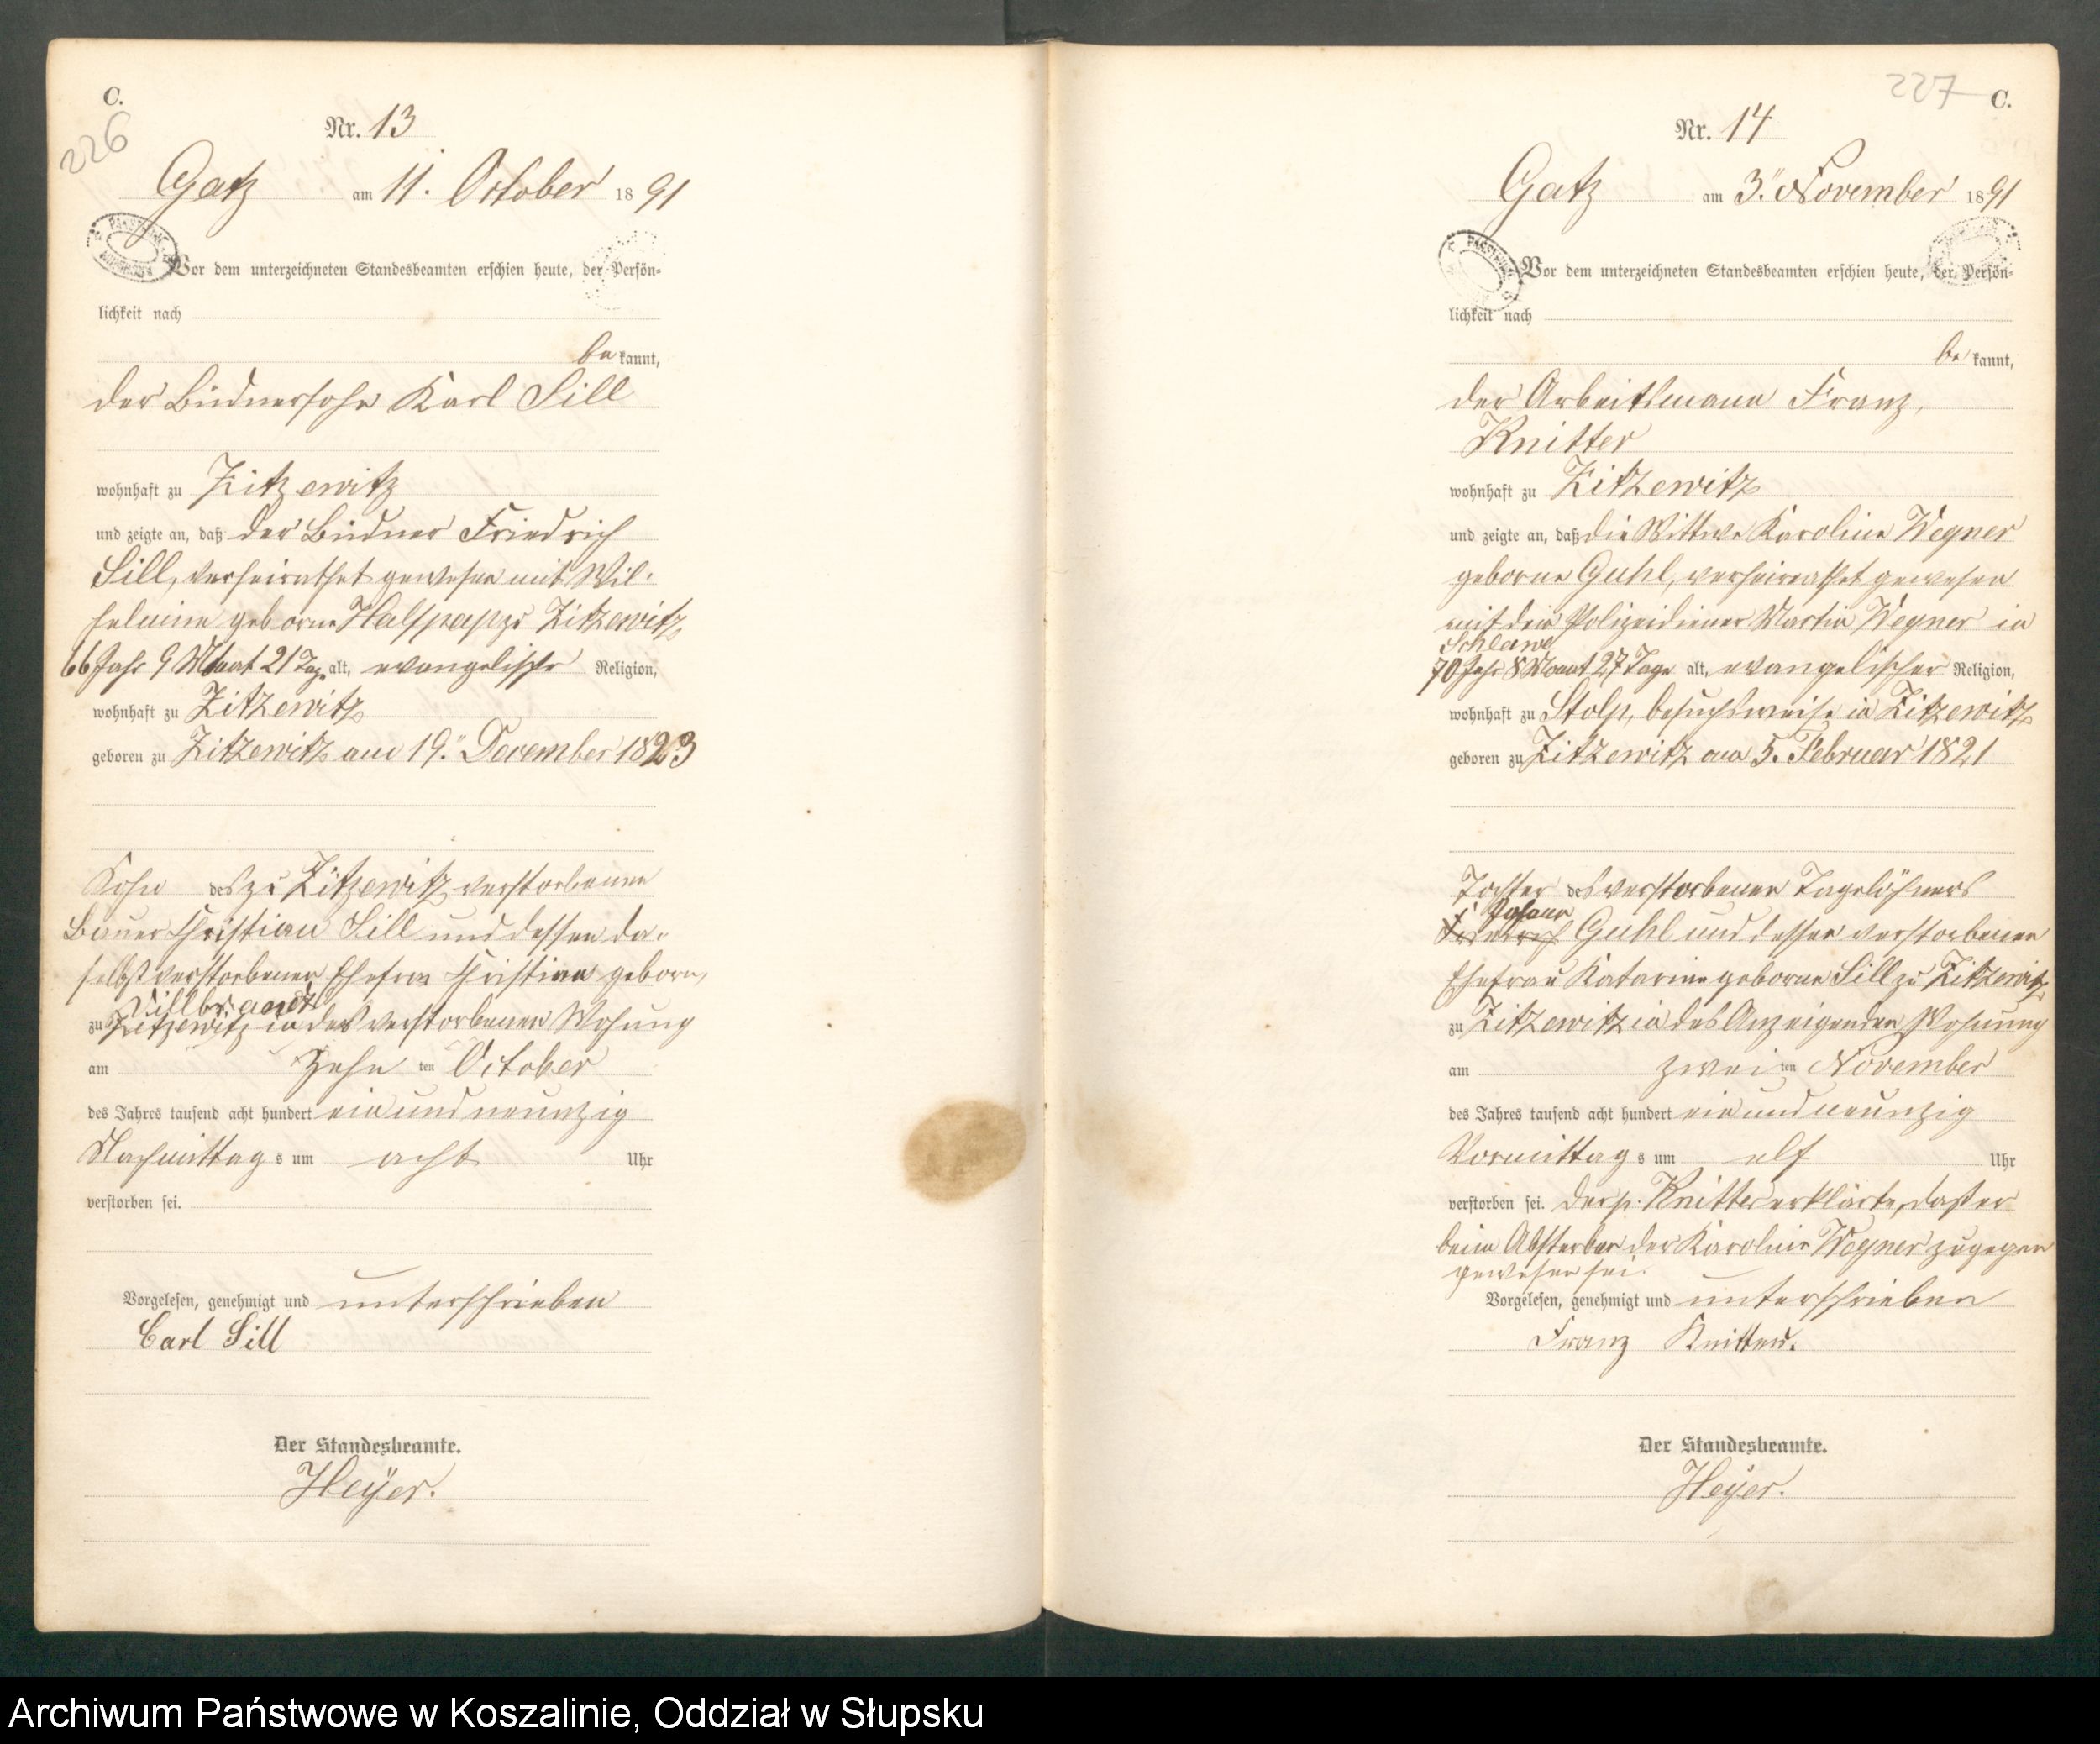 C.
226
Nr. 13
Gatz am 11. October 1891
Vor dem unterzeichneten Standesbeamten erschien heute, der Persön-
lichkeit nach
be kannt,
der Büdnersohn Karl Sill
wohnhaft zu Zitzewitz
und zeigte an, daß der Büdner Friedrich
Sill, verheirathet gewesen mit Wil-
helmine geborne Halfpap zu Zitzewitz
66 Jahr 9 Monat 21 Tage alt, evangelischer Religion,
wohnhaft zu Zitzewitz
geboren zu Zitzewitz am 19. December 1823
Sohn des zu Zitzewitz verstorbenen
Bauer Christian Sill und dessen da-
selbst verstorbenen Ehefrau Christine geborne
zu Zitzewitz in des verstorbenen Wohnung
am zehn ten October
des Jahres tausend acht hundert ein und neunzig
Nachmittag s um acht Uhr
verstorben sei.
Vorgelesen, genehmigt und unterschrieben
Carl Sill
Der Standesbeamte.
Heyer.
227 C.
Nr. 14
Gatz am 3. November 1891
Vor dem unterzeichneten Standesbeamten erschien heute, der Persön-
lichkeit nach
be kannt,
der Arbeitsmann Franz
Knitter
wohnhaft zu Zitzewitz
und zeigte an, daß die Wittwe Karoline Wegner
geborne Guhl, verheirathet gewesen
mit dem Polizeidiener Martin Wegner in
Schlawe
70 Jahr 8 Monat 27 Tage alt, evangelischer Religion,
wohnhaft zu Stolp, besuchsweise in Zitzewitz
geboren zu Zitzewitz am 5. Februar 1821
Tochter des verstorbenen Tagelöhners
Johann
Friedrich Guhl und dessen verstorbenen
Ehefrau Katarine geborne Sill zu Zitzewitz
zu Zitzewitz in des Anzeigenden Wohnung
am zwei ten November
des Jahres tausend acht hundert ein und neunzig
Vormittag s um elf Uhr
verstorben sei. Der p. Knitter erklärte, daß er
beim Absterben der Karoline Wegner zugegen
gewesen sei.
Vorgelesen, genehmigt und unterschrieben
Franz Knitter.
Der Standesbeamte.
Heyer.
Archiwum Państwowe w Koszalinie, Oddział w Słupsku